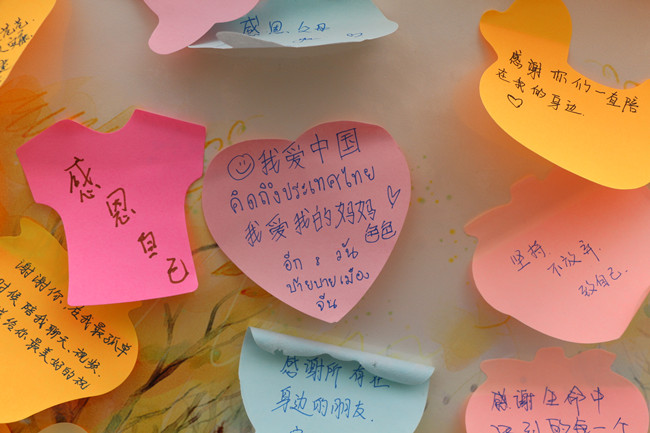 感恩父母
感谢你们一直陪
在我的身边
♡
感恩自己
☺我爱中国
คิดถึงประเทศไทย
我爱我的妈妈♡
色色
อีก 8 วัน
บ๊ายบายเมือง
จีน
坚持,
不放弃,
致自己.
谢谢你,在我最孤单
时候陪我聊天、视频.
送给你最美好的祝
感谢所有在
身边的朋友.
感谢生命中
遇到的每一个